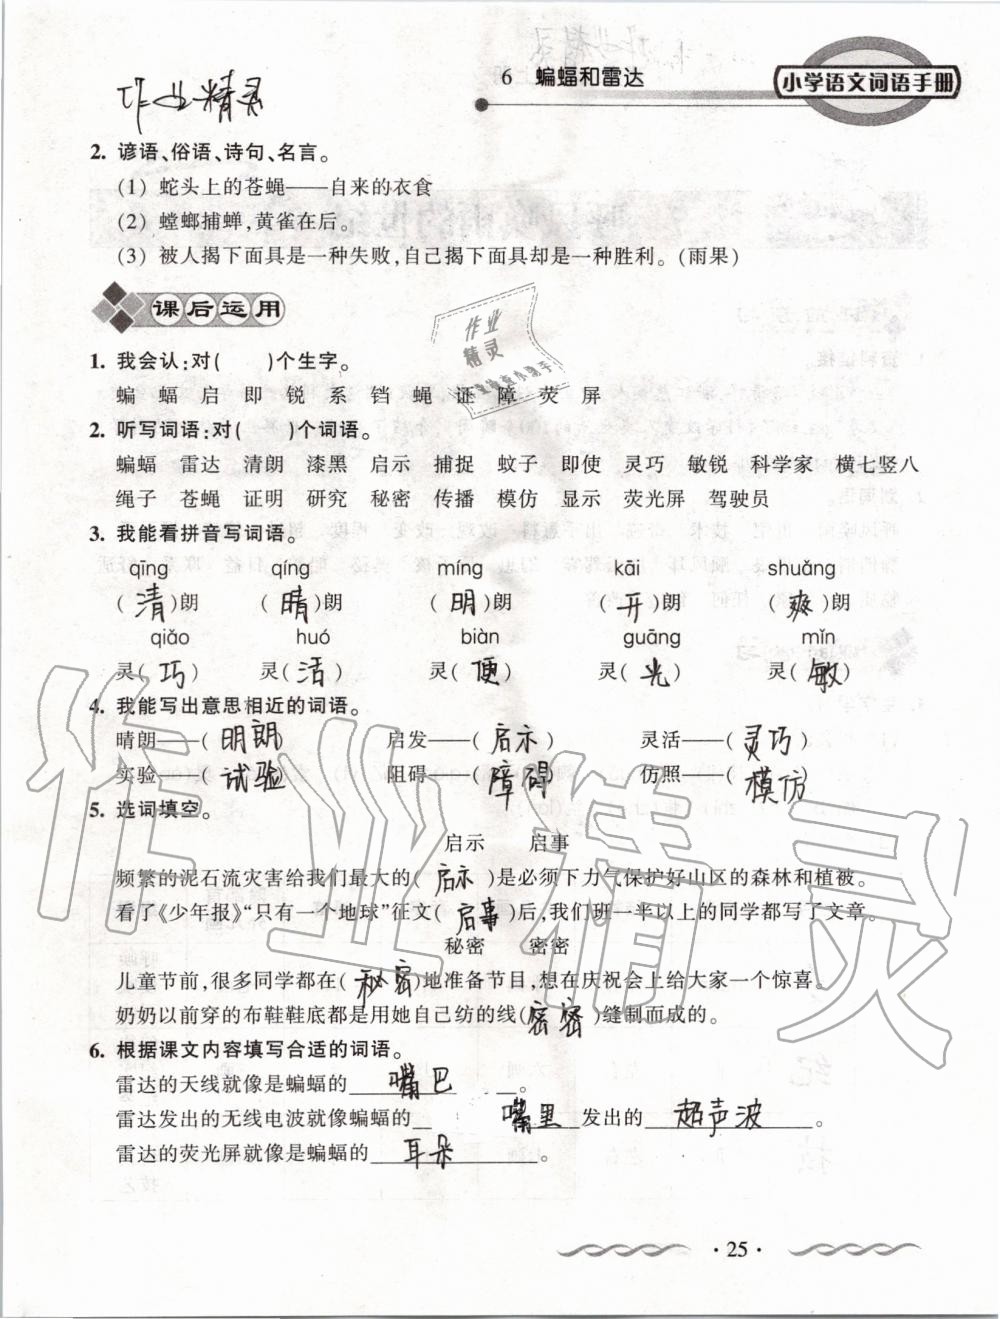 6 蝙蝠和雷达
小学语文词语手册
作业精灵
2. 谚语、俗语、诗句、名言。
(1) 蛇头上的苍蝇——自来的衣食
(2) 螳螂捕蝉,黄雀在后。
(3) 被人揭下面具是一种失败,自己揭下面具却是一种胜利。(雨果)
课后运用
作业
精灵
1. 我会认:对( )个生字。
蝙 蝠 启 即 锐 系 铛 蝇 证 障 荧 屏
2. 听写词语:对( )个词语。
蝙蝠 雷达 清朗 漆黑 启示 捕捉 蚊子 即使 灵巧 敏锐 科学家 横七竖八
绳子 苍蝇 证明 研究 秘密 传播 模仿 显示 荧光屏 驾驶员
3. 我能看拼音写词语。
qīng qíng míng kāi shuǎng
(清)朗 (晴)朗 (明)朗 (开)朗 (爽)朗
qiǎo huó biàn guāng mǐn
灵(巧) 灵(活) 灵(便) 灵(光) 灵(敏)
4. 我能写出意思相近的词语。
晴朗——(明朗) 启发——(启示) 灵活——(灵巧)
实验——(试验) 阻碍——(障碍) 仿照——(模仿)
5. 选词填空。
启示 启事
频繁的泥石流灾害给我们最大的(启示)是必须下力气保护好山区的森林和植被。
看了《少年报》“只有一个地球”征文(启事)后,我们班一半以上的同学都写了文章。
秘密 密密
儿童节前,很多同学都在(秘密)地准备节目,想在庆祝会上给大家一个惊喜。
奶奶以前穿的布鞋鞋底都是用她自己纺的线(密密)缝制而成的。
6. 根据课文内容填写合适的词语。
雷达的天线就像是蝙蝠的 嘴巴 。
雷达发出的无线电波就像蝙蝠的 嘴里 发出的 超声波 。
雷达的荧光屏就像是蝙蝠的 耳朵 。
作业精灵
· 25 ·